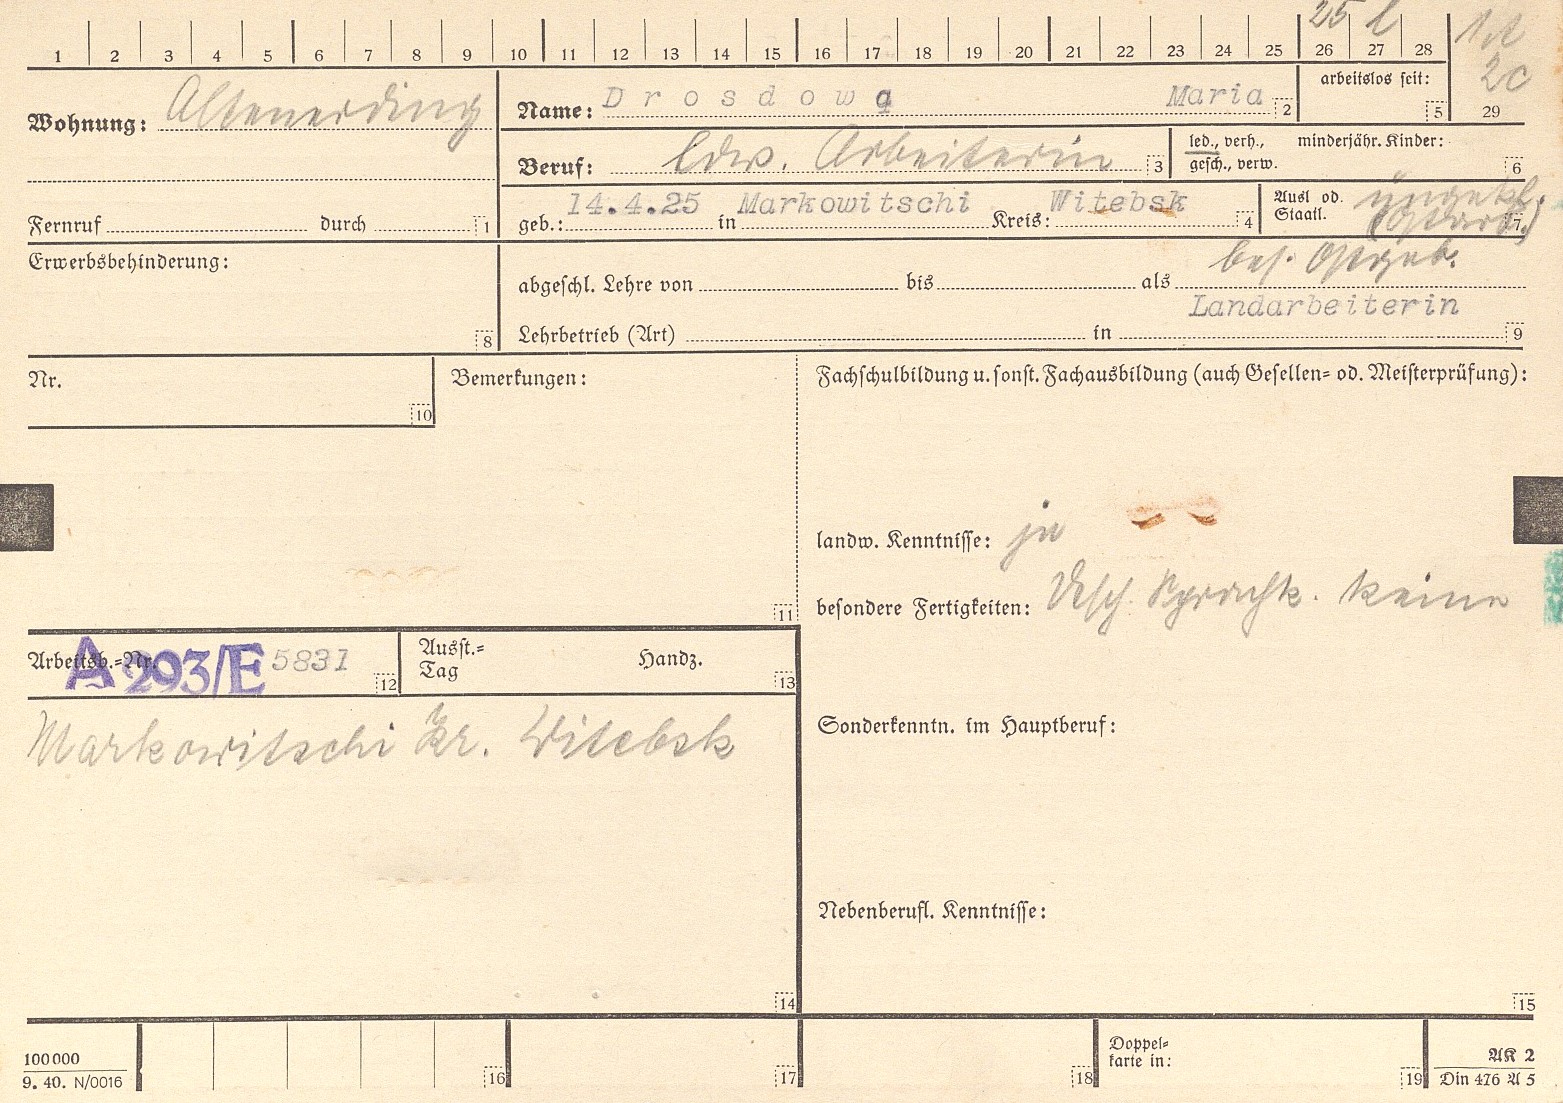 25 l
1 2 3 4 5 6 7 8 9 10 11 12 13 14 15 16 17 18 19 20 21 22 23 24 25 26 27 28 29
2c
Wohnung: Altenerding
Name: Drosdowa Maria 2
arbeitslos seit: 5
Beruf: ldw. Arbeiterin 3
led., verh., gesch., verw.
minderjähr. Kinder: 6
Fernruf durch 1
geb.: 14.4.25 in Markowitschi Kreis: Witebsk 4
Ausl od. Staatl. ungekl. (Ostarb.) 7
Erwerbsbehinderung: 8
bes. Ostgeb.
abgeschl. Lehre von bis als
Landarbeiterin
Lehrbetrieb (Art) in 9
Nr. 10
Bemerkungen: 11
Fachschulbildung u. sonst. Fachausbildung (auch Gesellen= od. Meisterprüfung):
landw. Kenntnisse: ja
besondere Fertigkeiten: Dtsch. Sprachk. keine
Arbeitsb.=Nr. A 293/E 5831 12
Ausst.=
Tag Handz. 13
Markowitschi Kr. Witebsk
14
Sonderkenntn. im Hauptberuf:
Nebenberufl. Kenntnisse:
15
100000
9. 40. N/0016
16 17 18
Doppel=
karte in: 19
AK 2
Din 476 A 5